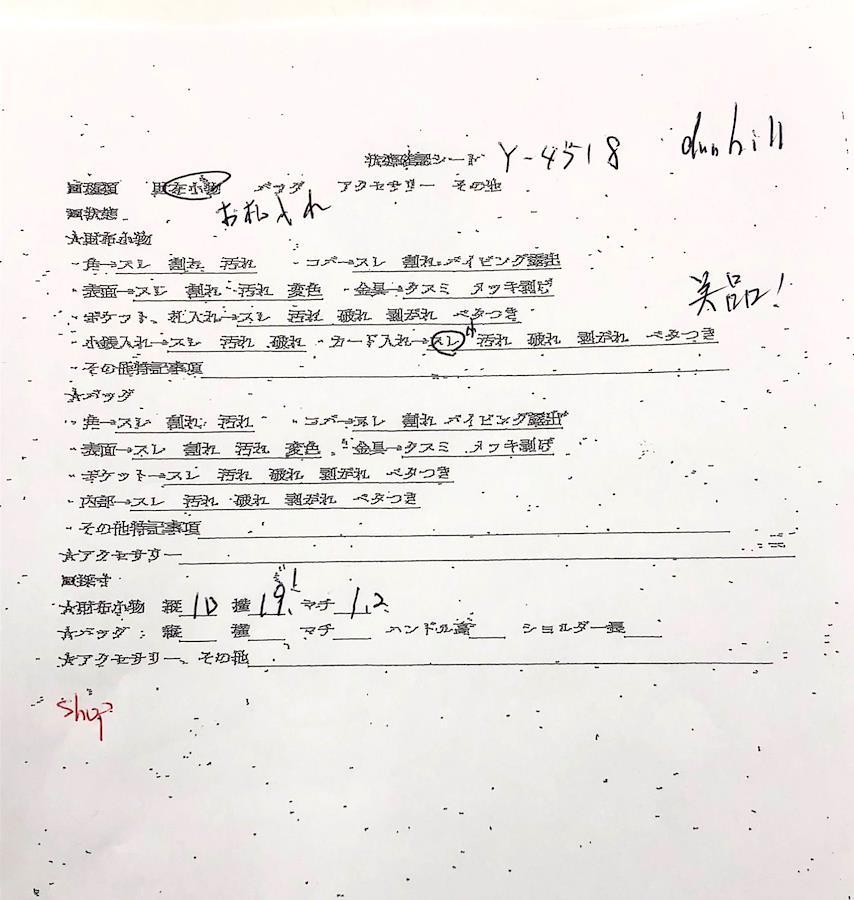 状態確認シート Y-4518 dunhill
■種類 財布小物 バッグ アクセサリー その他
■状態 お札入れ
★財布小物
・角→スレ 割れ 汚れ ・コバ→スレ 割れ パイピング露出
・表面→スレ 割れ 汚れ 変色 ・金具→クスミ メッキ剥げ 美品!
・ポケット、札入れ→スレ 汚れ 破れ 剥がれ ベタつき
・小銭入れ→スレ 汚れ 破れ ・カード入れ→スレ 小 汚れ 破れ 剥がれ ベタつき
・その他特記事項
★バッグ
・角→スレ 割れ 汚れ ・コバ→スレ 割れ パイピング露出
・表面→スレ 割れ 汚れ 変色 ・金具→クスミ メッキ剥げ
・ポケット→スレ 汚れ 破れ 剥がれ ベタつき
・内部→スレ 汚れ 破れ 剥がれ ベタつき
・その他特記事項
★アクセサリー
■採寸
★財布小物 縦 10 横 19. マチ 1.2
★バッグ: 縦 横 マチ ハンドル高 ショルダー長
★アクセサリー、その他
shop